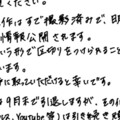 ください。
作はすで撮影済みで、即
情報公開されます。
いう形で区切りをつけられること
います。
に取っていただけると幸いです。
は9月まで引退しますが、その
ス、YouTube等)は引き続き